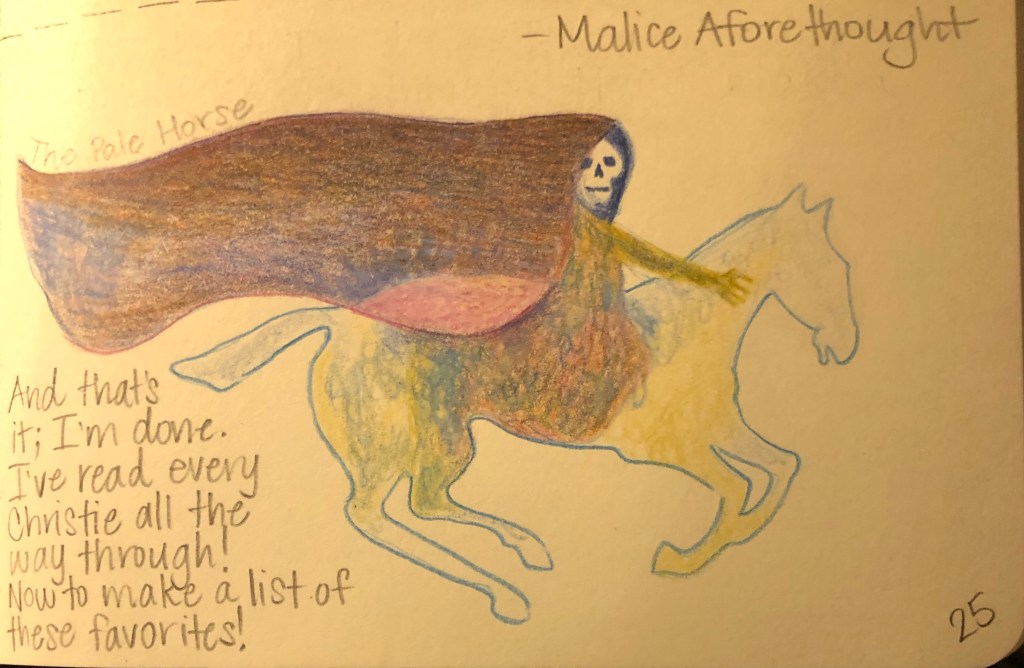 – Malice Aforethought
The Pale Horse
And that's
it; I'm done.
I've read every
Christie all the
way through!
Now to make a list of
these favorites!
25